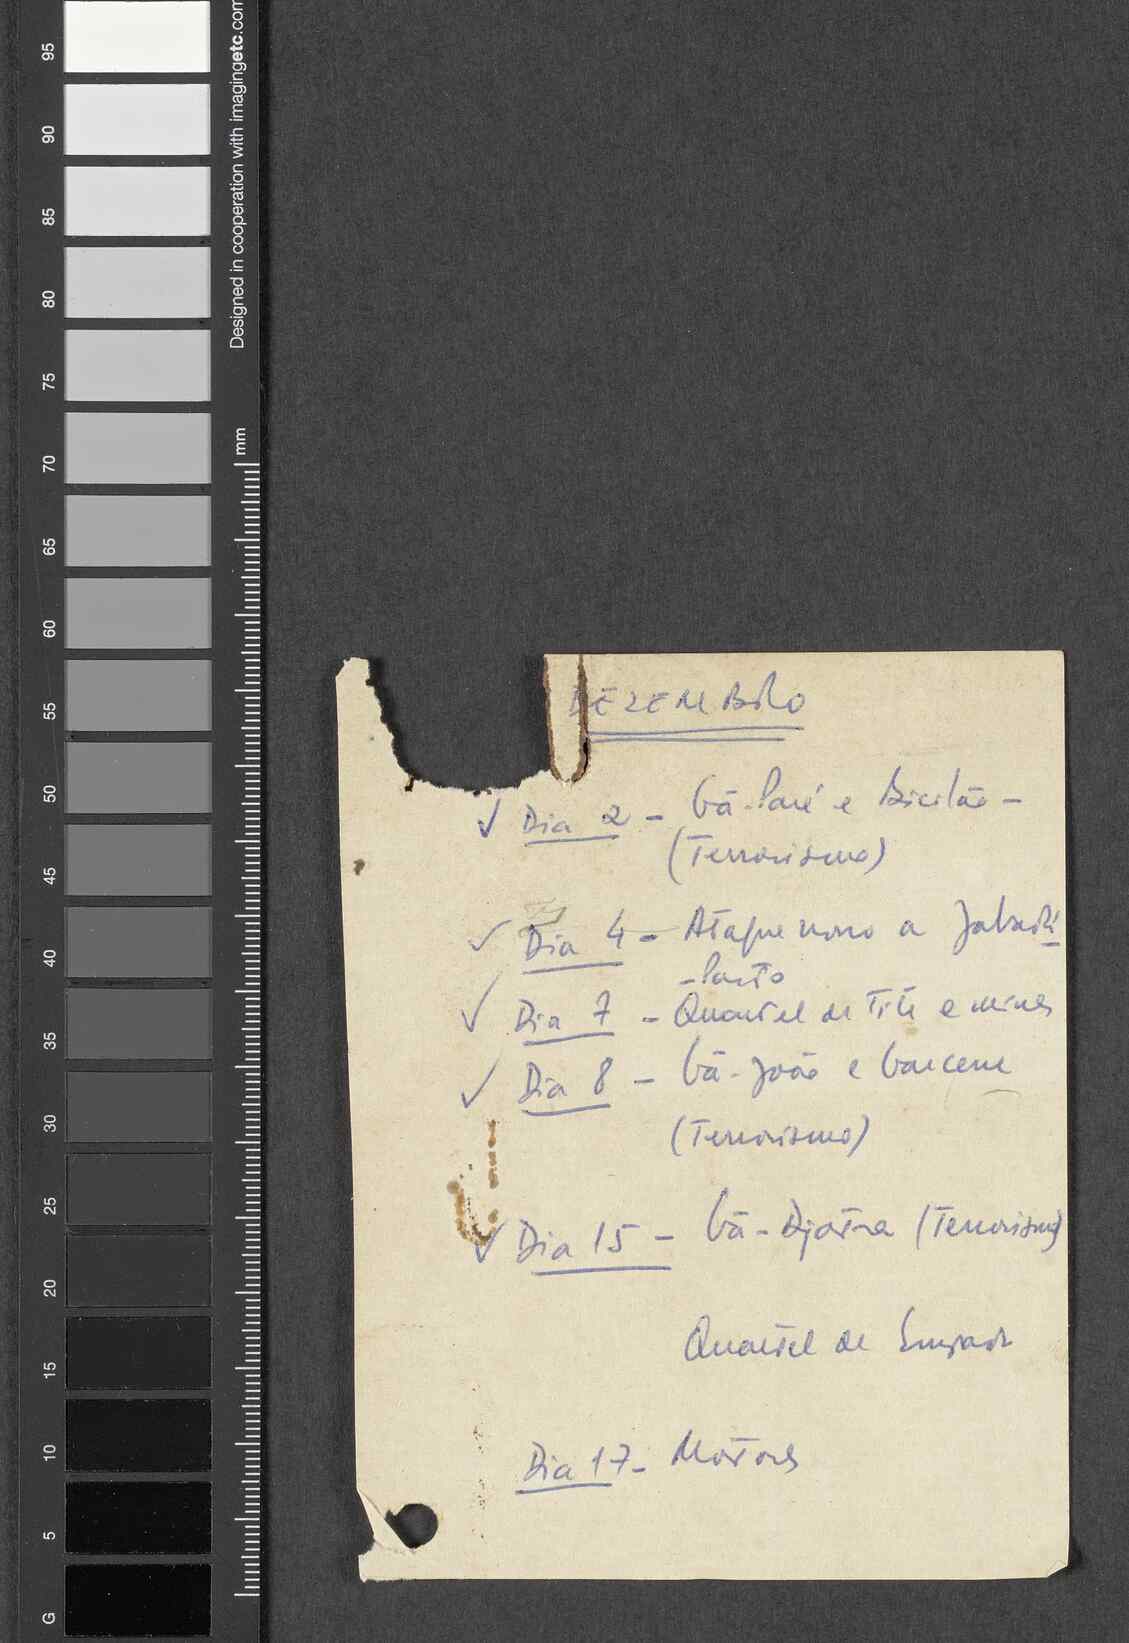 95
90
85
80
75
70
65
60
55
50
45
40
35
30
25
20
15
10
5
G
Designed in cooperation with imagingetc.com
mm
DEZEMBRO
Dia 2 - Gã-Paré e Bicilão -
(Terrorismo)
Dia 4 - Ataque novo a Jabadá
- Porto
Dia 7 - Quartel de Tite e minas
Dia 8 - Gã-João e Garcene
(Terrorismo)
Dia 15 - Gã-Djatra (Terrorismo)
Quartel de Empada
Dia 17 - Motores